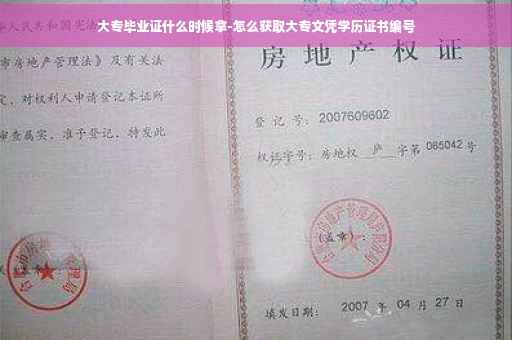 大专毕业证什么时候拿-怎么获取大专文凭学历证书编号
人民共和国宪法
市房地产管理法》及有关法
定，对权利人申请登记本证所
审查属实，准予登记，特发此
房地产权证
登记号：2007609602
权证字号：房地权 庐 字第 085042 号
(盖章)：
填发日期：2007 年 04 月 27 日